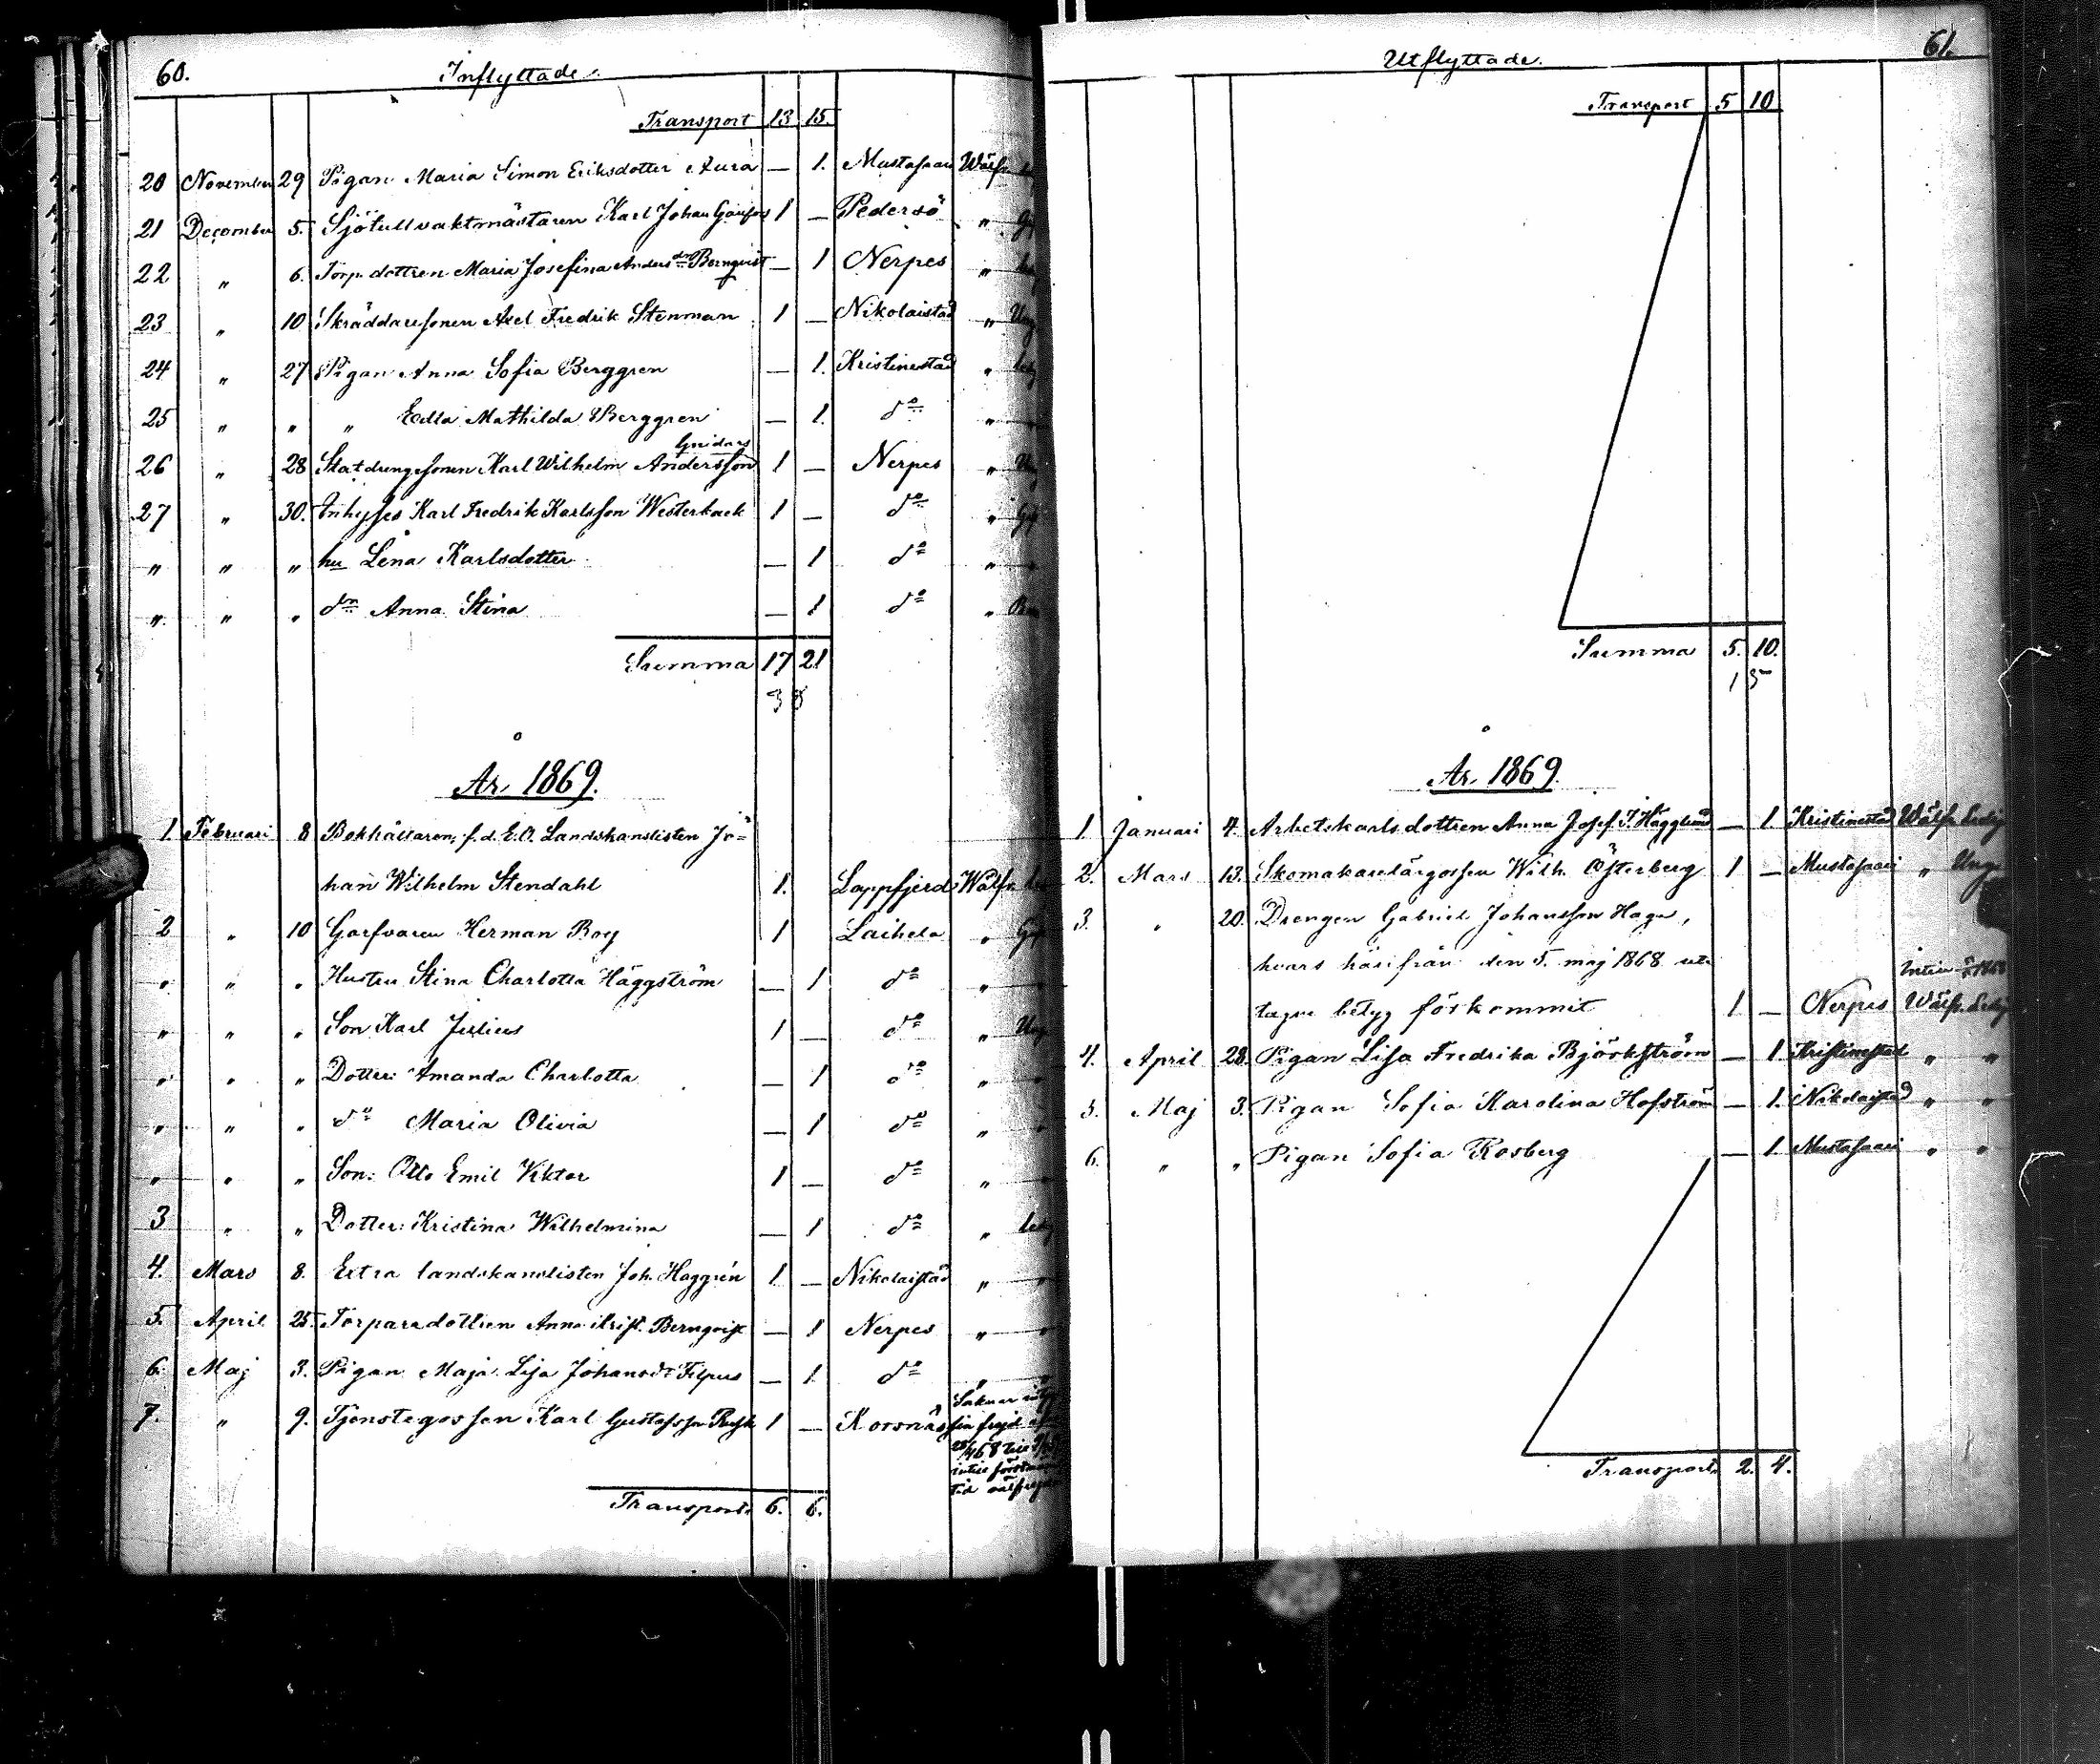 60.
Inflyttade.
Transport 13 15.
20 November 29 Pigan Maria Simon Eriksdotter Aura — 1. Mustasaari Wälfr.
21 December 5. Sjötullvaktmästaren Karl Johan 1 — Pedersö "
22 " 6. Torp. dottren Maria Josefina Anders dr Bernqvist — 1 Nerpes "
23 " 10 Skräddaresonen Axel Fredrik Stenman 1 — Nikolaistad " Ung
24 " 27 Pigan Anna Sofia Berggren — 1. Kristinestad " led
25 " " " Edla Mathilda Berggren — 1. do "
Gnidars
26 " 28 Statdrengssonen Karl Wilhelm Andersson 1 — Nerpes "
27 " 30. Inhyses Karl Fredrik Karlsson Westerback 1 — do "
" " " hu Lena Karlsdotter — 1 do "
" " " dr Anna Stina — 1 do "
Summa 17 21
38
År 1869.
1. Februari 8 Bokhållaren, f.d. E.O. Landskanslisten Jo=
han Wilhelm Stendahl 1. Lappfjerd Wälfr.
2 " 10 Garfvaren Herman Boy 1 Laihela "
" " " Hustru Stina Charlotta Häggström — 1 do "
" " " Son Karl Julius 1 — do " Ung
" " " Dotter: Amanda Charlotta — 1 do "
" " " do Maria Olivia — 1 do "
" " " Son: Otto Emil Viktor 1 — do "
3 " " Dotter: Kristina Wilhelmina — 1 do " led
4. Mars 8. Extra landskanslisten Joh. Haggrén 1 — Nikolaistad "
5. April 25. Torparedottren Anna Krist. Bernqvist — 1 Nerpes "
6. Maj 3. Pigan Maja Lisa Johansdr Filpus — 1. do "
7. " 9. Tjenstegossen Karl Gustafsson 1 — Korsnäs
Saknar
Transport. 6. 6.
61.
Utflyttade.
Transport 5 10
Summa 5. 10.
15
År 1869.
1. Januari 4. Arbetskarlsdottren Anna Josef. J. Hägglund — 1. Kristinestad Wälfr. Ledig
2. Mars 13. Skomakarelärgossen Wilh. Österberg 1 — Mustasaari " Ung
3. " 20. Drengen Gabriel Johansson Haga,
hvars härifrån den 5. maj 1868 ut=
tagne betyg förkommit 1 — Nerpes Wälfr. Ledig
4. April 28. Pigan Lisa Fredrika Björkström — 1. Kristinestad " "
5. Maj 3. Pigan Sofia Karolina Hofström — 1. Nikolaistad " "
6. " " Pigan Sofia Rosberg — 1. Mustasaari " "
Transport. 2. 4.